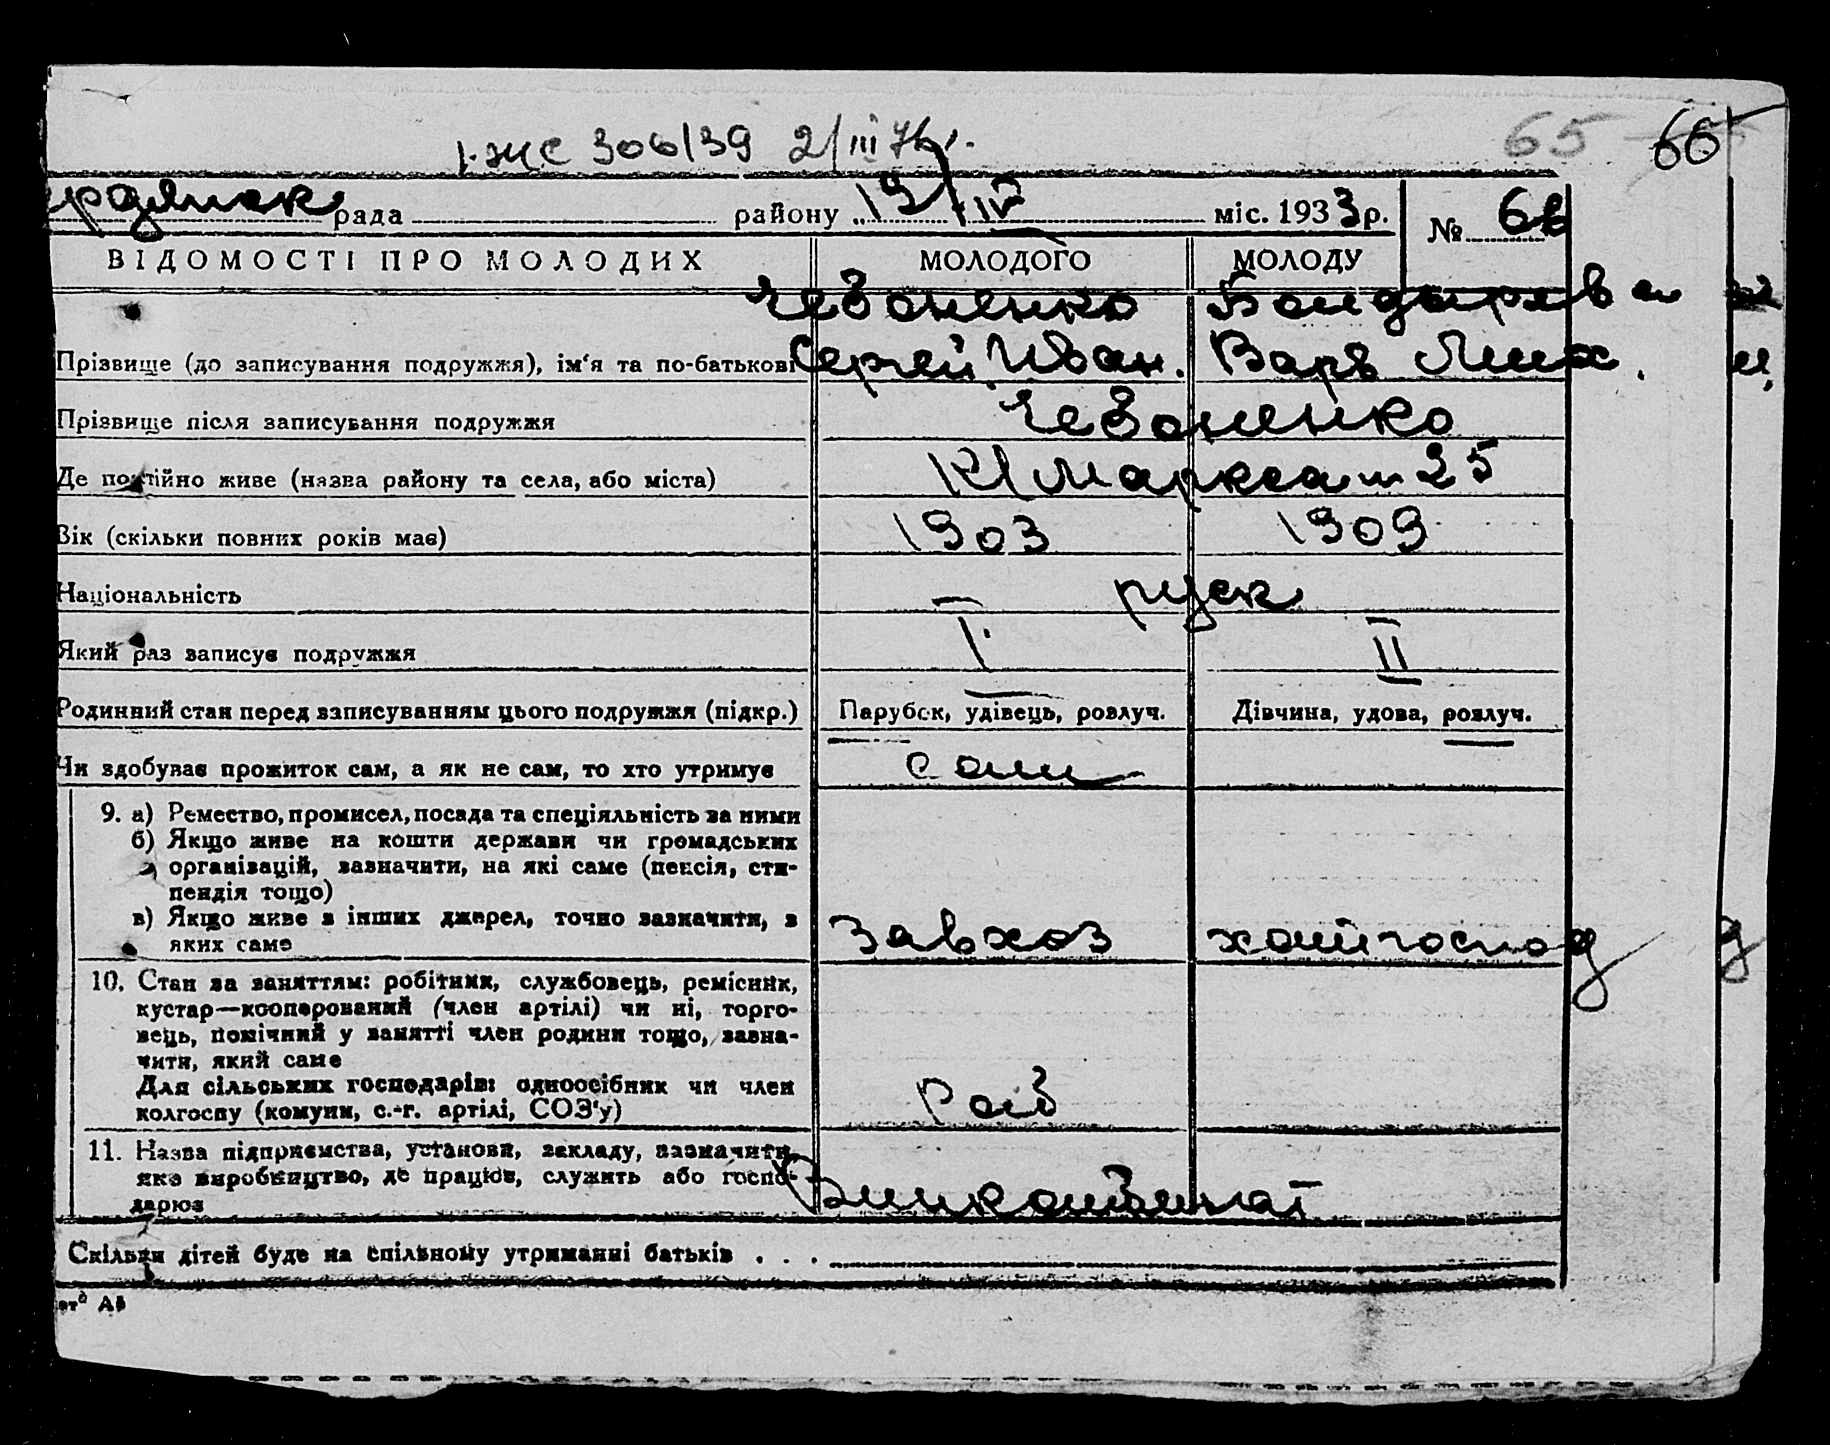 306/39 2/III 76 г.
65 66
рдянск рада район у 19/IV міс. 1933 р. №
ВІДОМОСТІ ПРО МОЛОДИХ МОЛОДОГО МОЛОДУ
Прізвище (до записування подружжя), ім'я та по-батькові Сергей Иван. Варв Мих.
Прізвище після записування подружжя
Де постійно живе (назва району та села, або міста) К/Маркса 25
Вік (скільки повних років має) 1903 1909
Національність руск
Який раз записує подружжя I. II
Родинний стан перед записуванням цього подружжя (підкр.) Парубок, удівець, розлуч. Дівчина, удова, розлуч.
Чи здобуває прожиток сам, а як не сам, то хто утримує сам
9. а) Ремество, промисел, посада та спеціяльність за ними
б) Якщо живе на кошти держави чи громадських
організацій, зазначити, на які саме (пенсія, сти-
пендія тощо)
в) Якщо живе з інших джерел, точно зазначити, з
яких саме завхоз
10. Стан за заняттям: робітник, службовець, ремісник,
кустар—кооперований (член артілі) чи ні, торго-
вець, помічний у занятті член родини тощо, зазна-
чити, який саме
Для сільських господарів: одноосібник чи член
колгоспу (комуни, с.-г. артілі, СОЗ'у) Раб
11. Назва підприємства, установи, закладу, зазначити,
яке виробництво, де працює, служить або госпо-
дарює
Скільки дітей буде на спільному утриманні батьків . . .